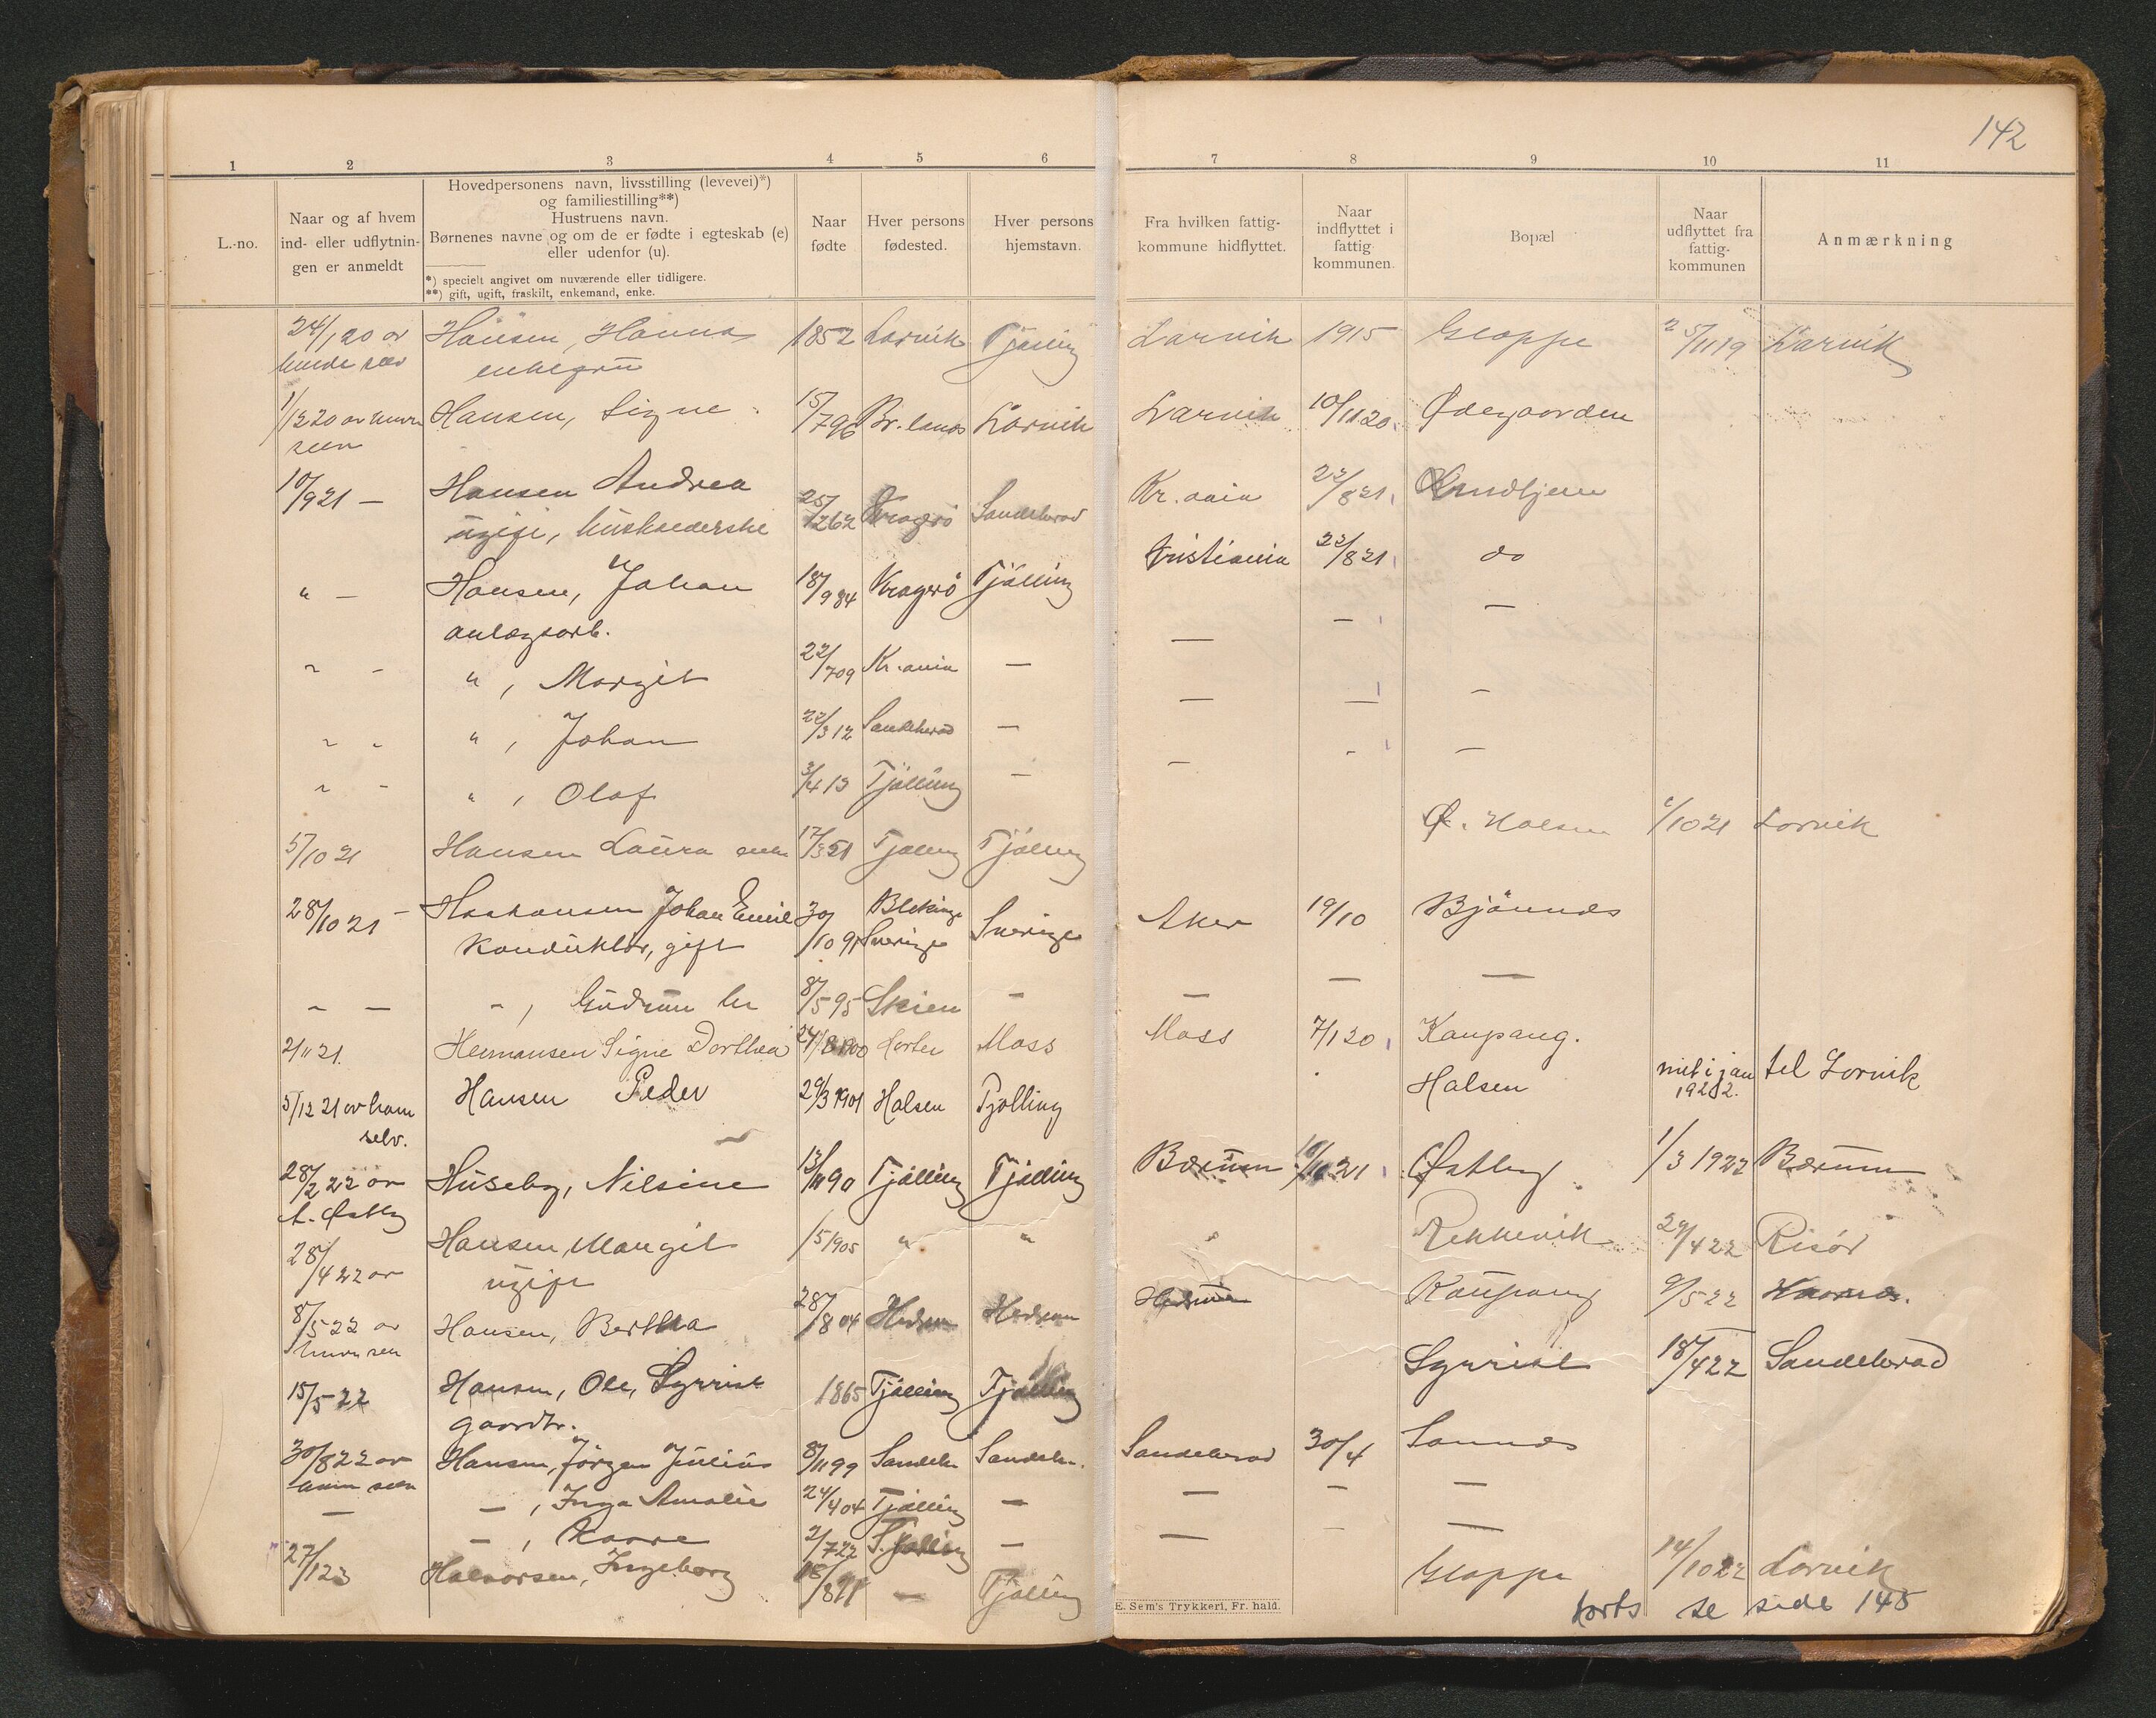 142
1 2 3 4 5 6 7 8 9 10 11
L.-no.
Naar og af hvem
ind- eller udflytnin-
gen er anmeldt
Hovedpersonens navn, livsstilling (levevei)*)
og familiestilling**)
Hustruens navn.
Børnenes navne og om de er fødte i egteskab (e)
eller udenfor (u).
*) specielt angivet om nuværende eller tidligere.
**) gift, ugift, fraskilt, enkemand, enke.
Naar
fødte
Hver persons
fødested.
Hver persons
hjemstavn.
Fra hvilken fattig-
kommune hidflyttet.
Naar
indflyttet i
fattig-
kommunen.
Bopæl
Naar
udflyttet fra
fattig-
kommunen
Anmærkning
Hansen, Hanna 1852 Larvik Tjølling Larvik 1915 Gloppe 25/11 19 Larvik
Hansen, Signe 15/7 96 Larvik Larvik 10/11 20 Ødegaarden
10/9 21 — Hansen Andrea 25/12 62 Kragerø Sandeherad Kr.ania 22/8 21
ugift, husholderske
" — Hansen, Johan 18/9 84 Kragerø Tjølling Kristiania 22/8 21 do
anlægsarb.
" , Margit 22/7 09 Kr.ania — — — —
" , Johan 22/3 12 Sandeherad — — — —
" , Olaf 3/4 13 Tjølling — — —
5/10 21 Hansen Laura enke Tjølling Tjølling Ø. Halsen 1/10 21 Larvik
28/10 21 — Haakansen Johan Emil 30/10 91 Blekinge Sverige Aker 19/10 Bjønnes
Konduktør, gift Sverige
— — — , Gudrun 8/5 95 Skien — — — —
2/11 21. Hermansen Signe Dorthea 1900 Horten Moss Moss 7/1 20 Kaupang.
5/12 21 av ham Hansen Peder 29/3 1901 Halsen Tjølling Halsen mit i jan til Larvik
selv. 1922.
28/2 22 av Huseby, Nilsine 13/11 90 Tjølling Tjølling Bærum 21 Østby 1/3 1922 Bærum
A. Østby
28/4 22 av Hansen, Margit /5 1905 " " " Rekkevik 29/4 22 Risør
ugift
8/5 22 av Hansen, Bertha 28/8 04 Hedrum Hedrum Hedrum Kaupang 9/5 22
15/5 22 Hansen, Ole, Syrrist 1865 Tjølling Tjølling Syrrist 18/4 22 Sandeherad
gaardbr.
30/8 22 av Hansen, Jørgen Julius 8/11 99 Sandeh. Sandeh. Sandeherad 30/4 Sannes
— — , Inga Amalie 24/4 04 Tjølling — — — —
— , Kaare 2/7 22 Tjølling — — — —
27/1 23 Halvorsen, Ingeborg — Tjølling Gloppe 14/10 22 Larvik
E. Sem's Trykkeri, Fr. hald.
forts se side 148